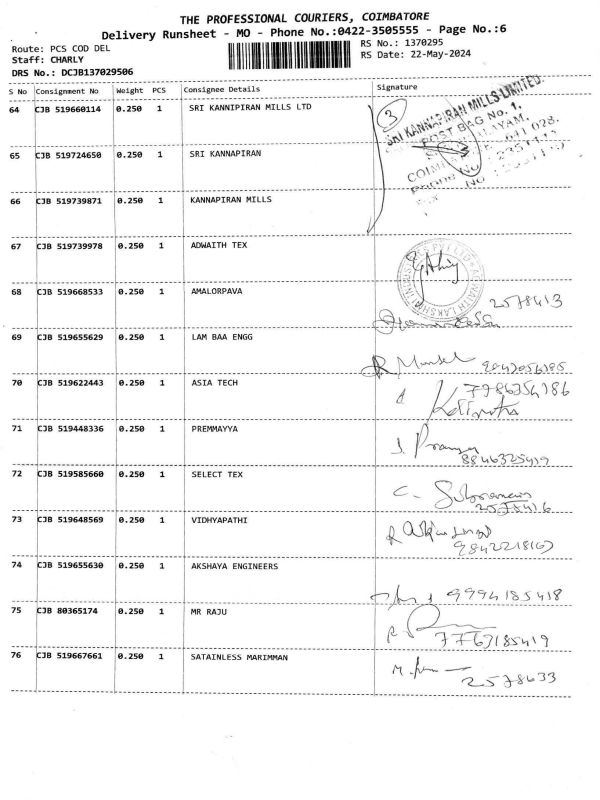 THE PROFESSIONAL COURIERS, COIMBATORE
Delivery Runsheet - MO - Phone No.:0422-3505555 - Page No.:6
Route: PCS COD DEL
Staff: CHARLY
DRS No.: DCJB137029506
RS No.: 1370295
RS Date: 22-May-2024
S No Consignment No Weight PCS Consignee Details Signature
64 CJB 519660114 0.250 1 SRI KANNIPIRAN MILLS LTD
3
SRI KANNAPIRAN MILLS LIMITED.
POST BAG No. 1,
65 CJB 519724650 0.250 1 SRI KANNAPIRAN
66 CJB 519739871 0.250 1 KANNAPIRAN MILLS
67 CJB 519739978 0.250 1 ADWAITH TEX
68 CJB 519668533 0.250 1 AMALORPAVA
2578413
69 CJB 519655629 0.250 1 LAM BAA ENGG
70 CJB 519622443 0.250 1 ASIA TECH
71 CJB 519448336 0.250 1 PREMMAYYA
8846325419
72 CJB 519585660 0.250 1 SELECT TEX
2578416
73 CJB 519648569 0.250 1 VIDHYAPATHI
74 CJB 519655630 0.250 1 AKSHAYA ENGINEERS
9994185418
75 CJB 80365174 0.250 1 MR RAJU
7767185419
76 CJB 519667661 0.250 1 SATAINLESS MARIMMAN
2578633